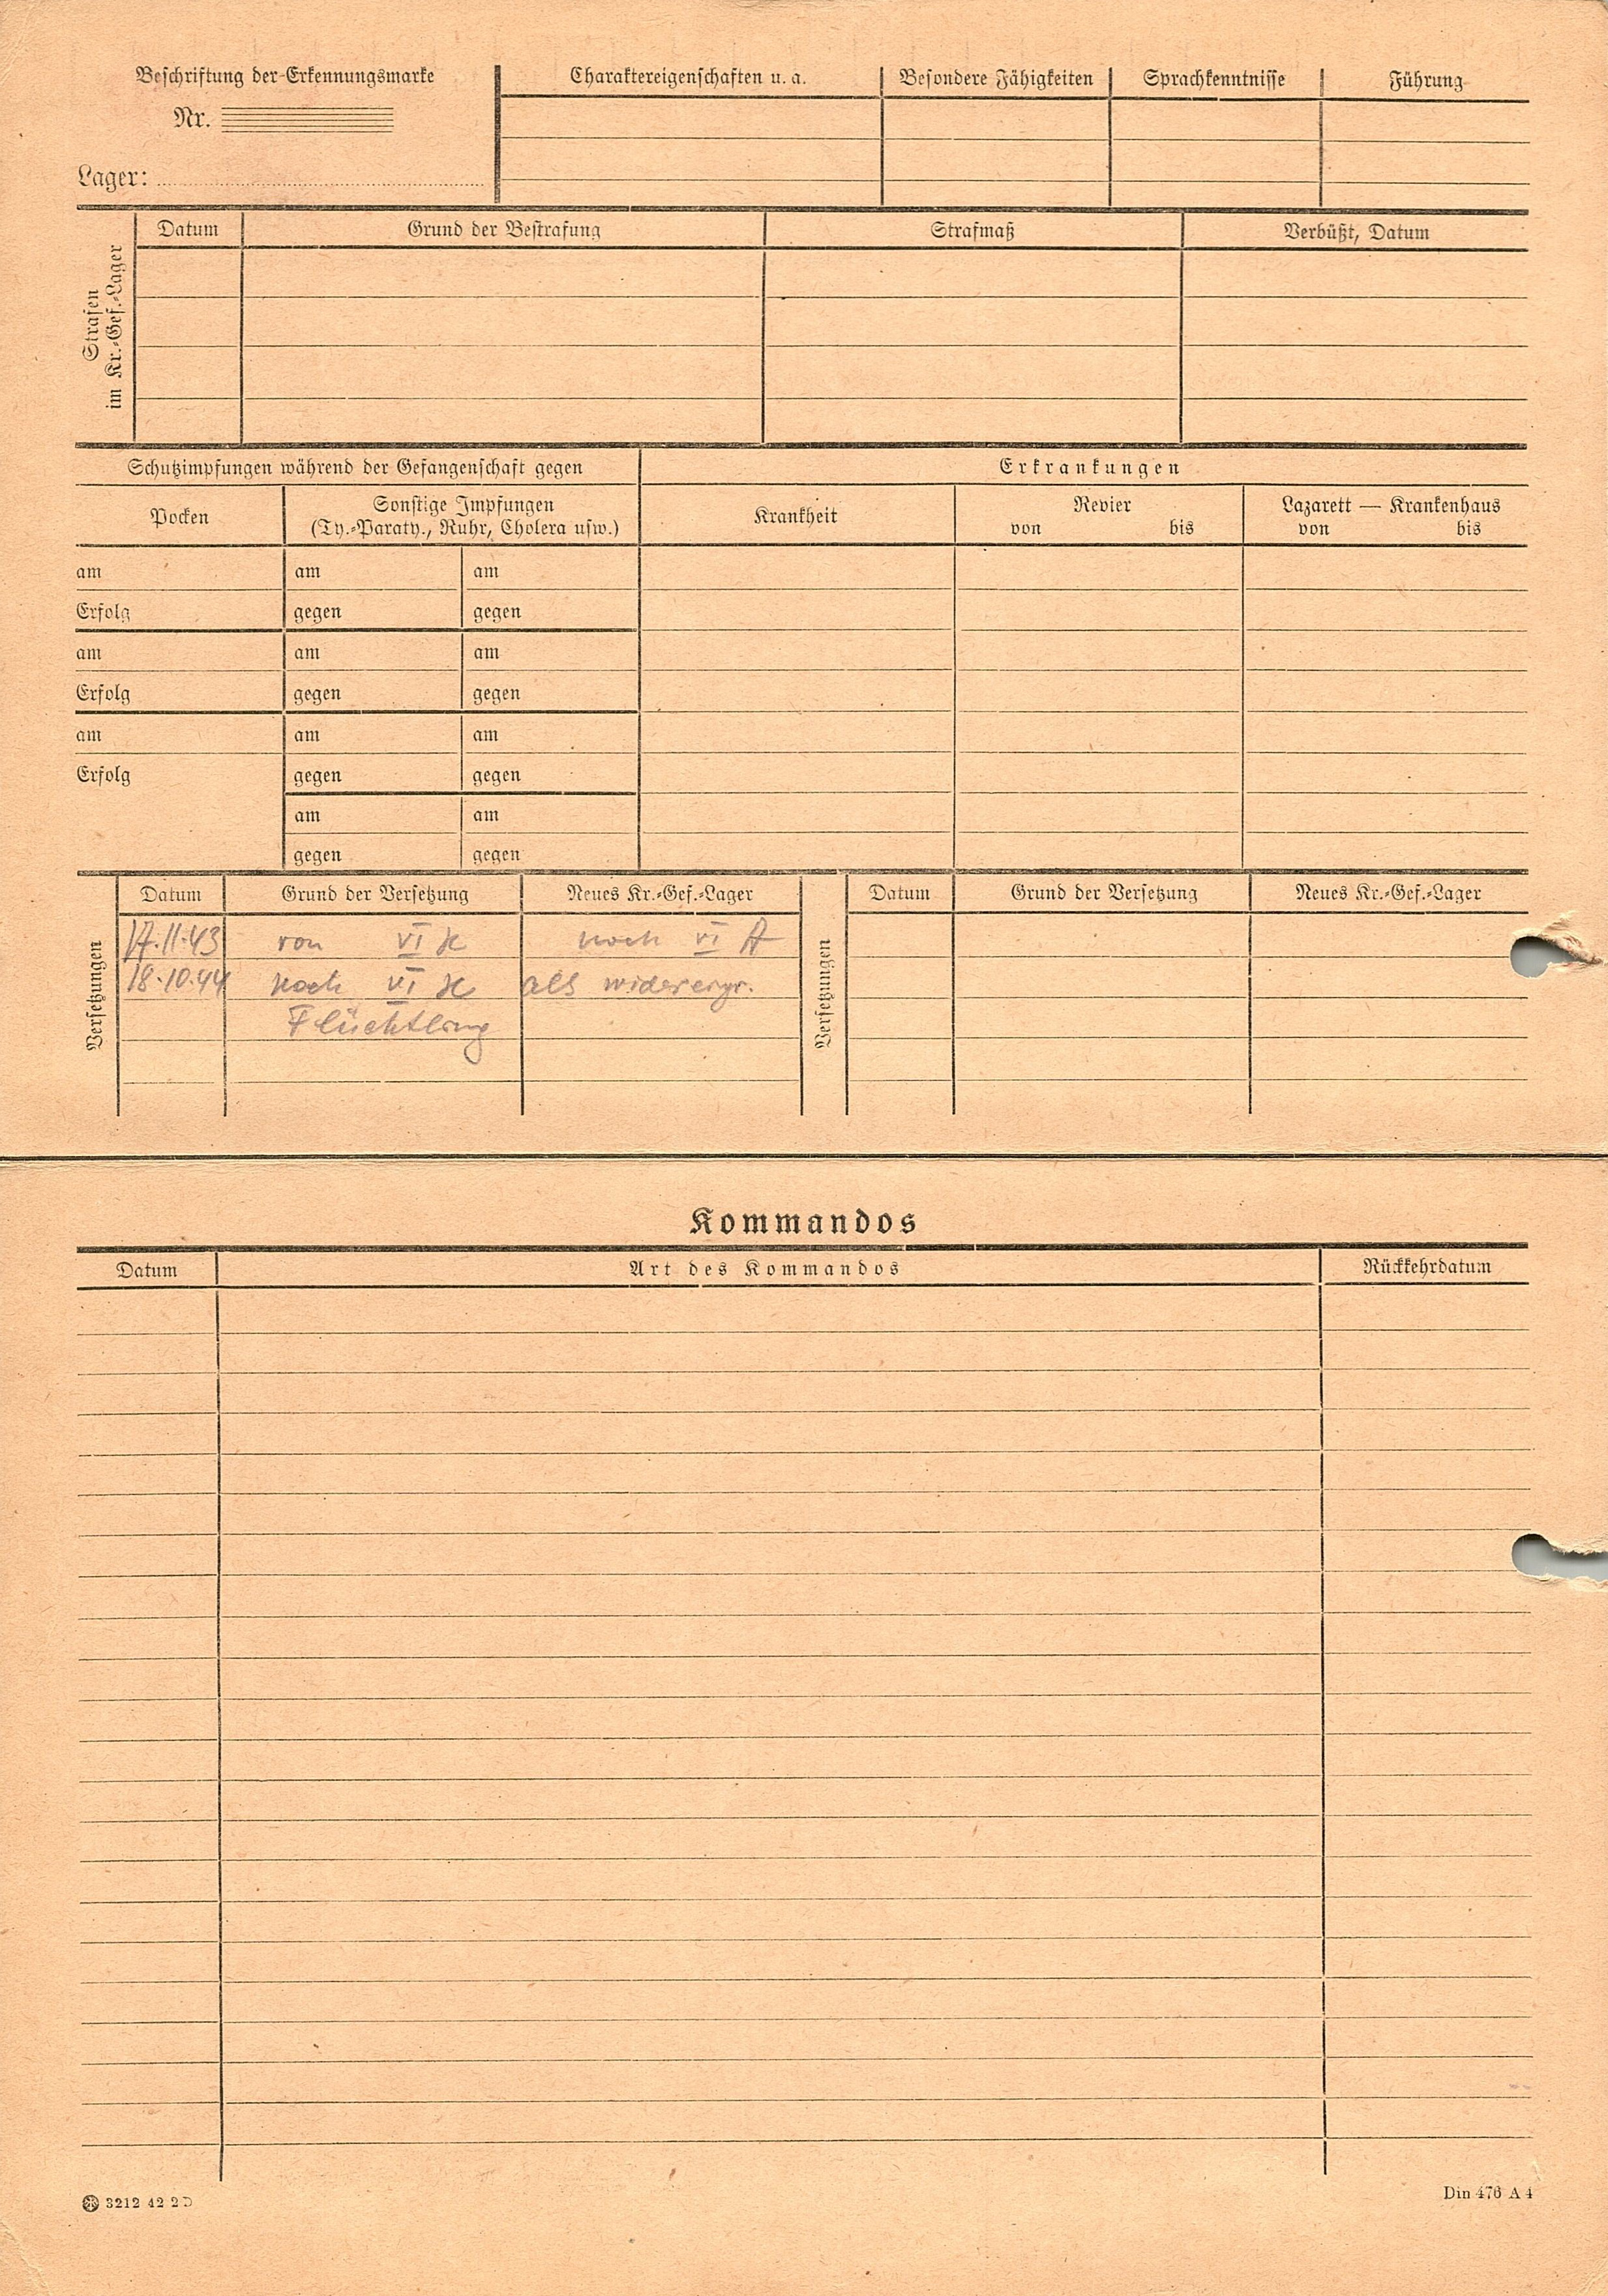 Beschriftung der Erkennungsmarke
Nr.
Lager:
Charaktereigenschaften u. a.
Besondere Fähigkeiten
Sprachkenntnisse
Führung
Strafen
im Kr.-Gef.-Lager
Datum
Grund der Bestrafung
Strafmaß
Verbüßt, Datum
Schutzimpfungen während der Gefangenschaft gegen
Erkrankungen
Pocken
Sonstige Impfungen
(Ty.-Paraty., Ruhr, Cholera usw.)
Krankheit
Revier
von bis
Lazarett — Krankenhaus
von bis
am am am
Erfolg gegen gegen
am am am
Erfolg gegen gegen
am am am
Erfolg gegen gegen
am am
gegen gegen
Versetzungen
Datum Grund der Versetzung Neues Kr.-Gef.-Lager
17.11.43 von VI K nach VI A
18.10.44 nach VI K als
Flüchtling
Versetzungen
Datum Grund der Versetzung Neues Kr.-Gef.-Lager
Kommandos
Datum Art des Kommandos Rückkehrdatum
3212 42 2 D
Din 476 A 4